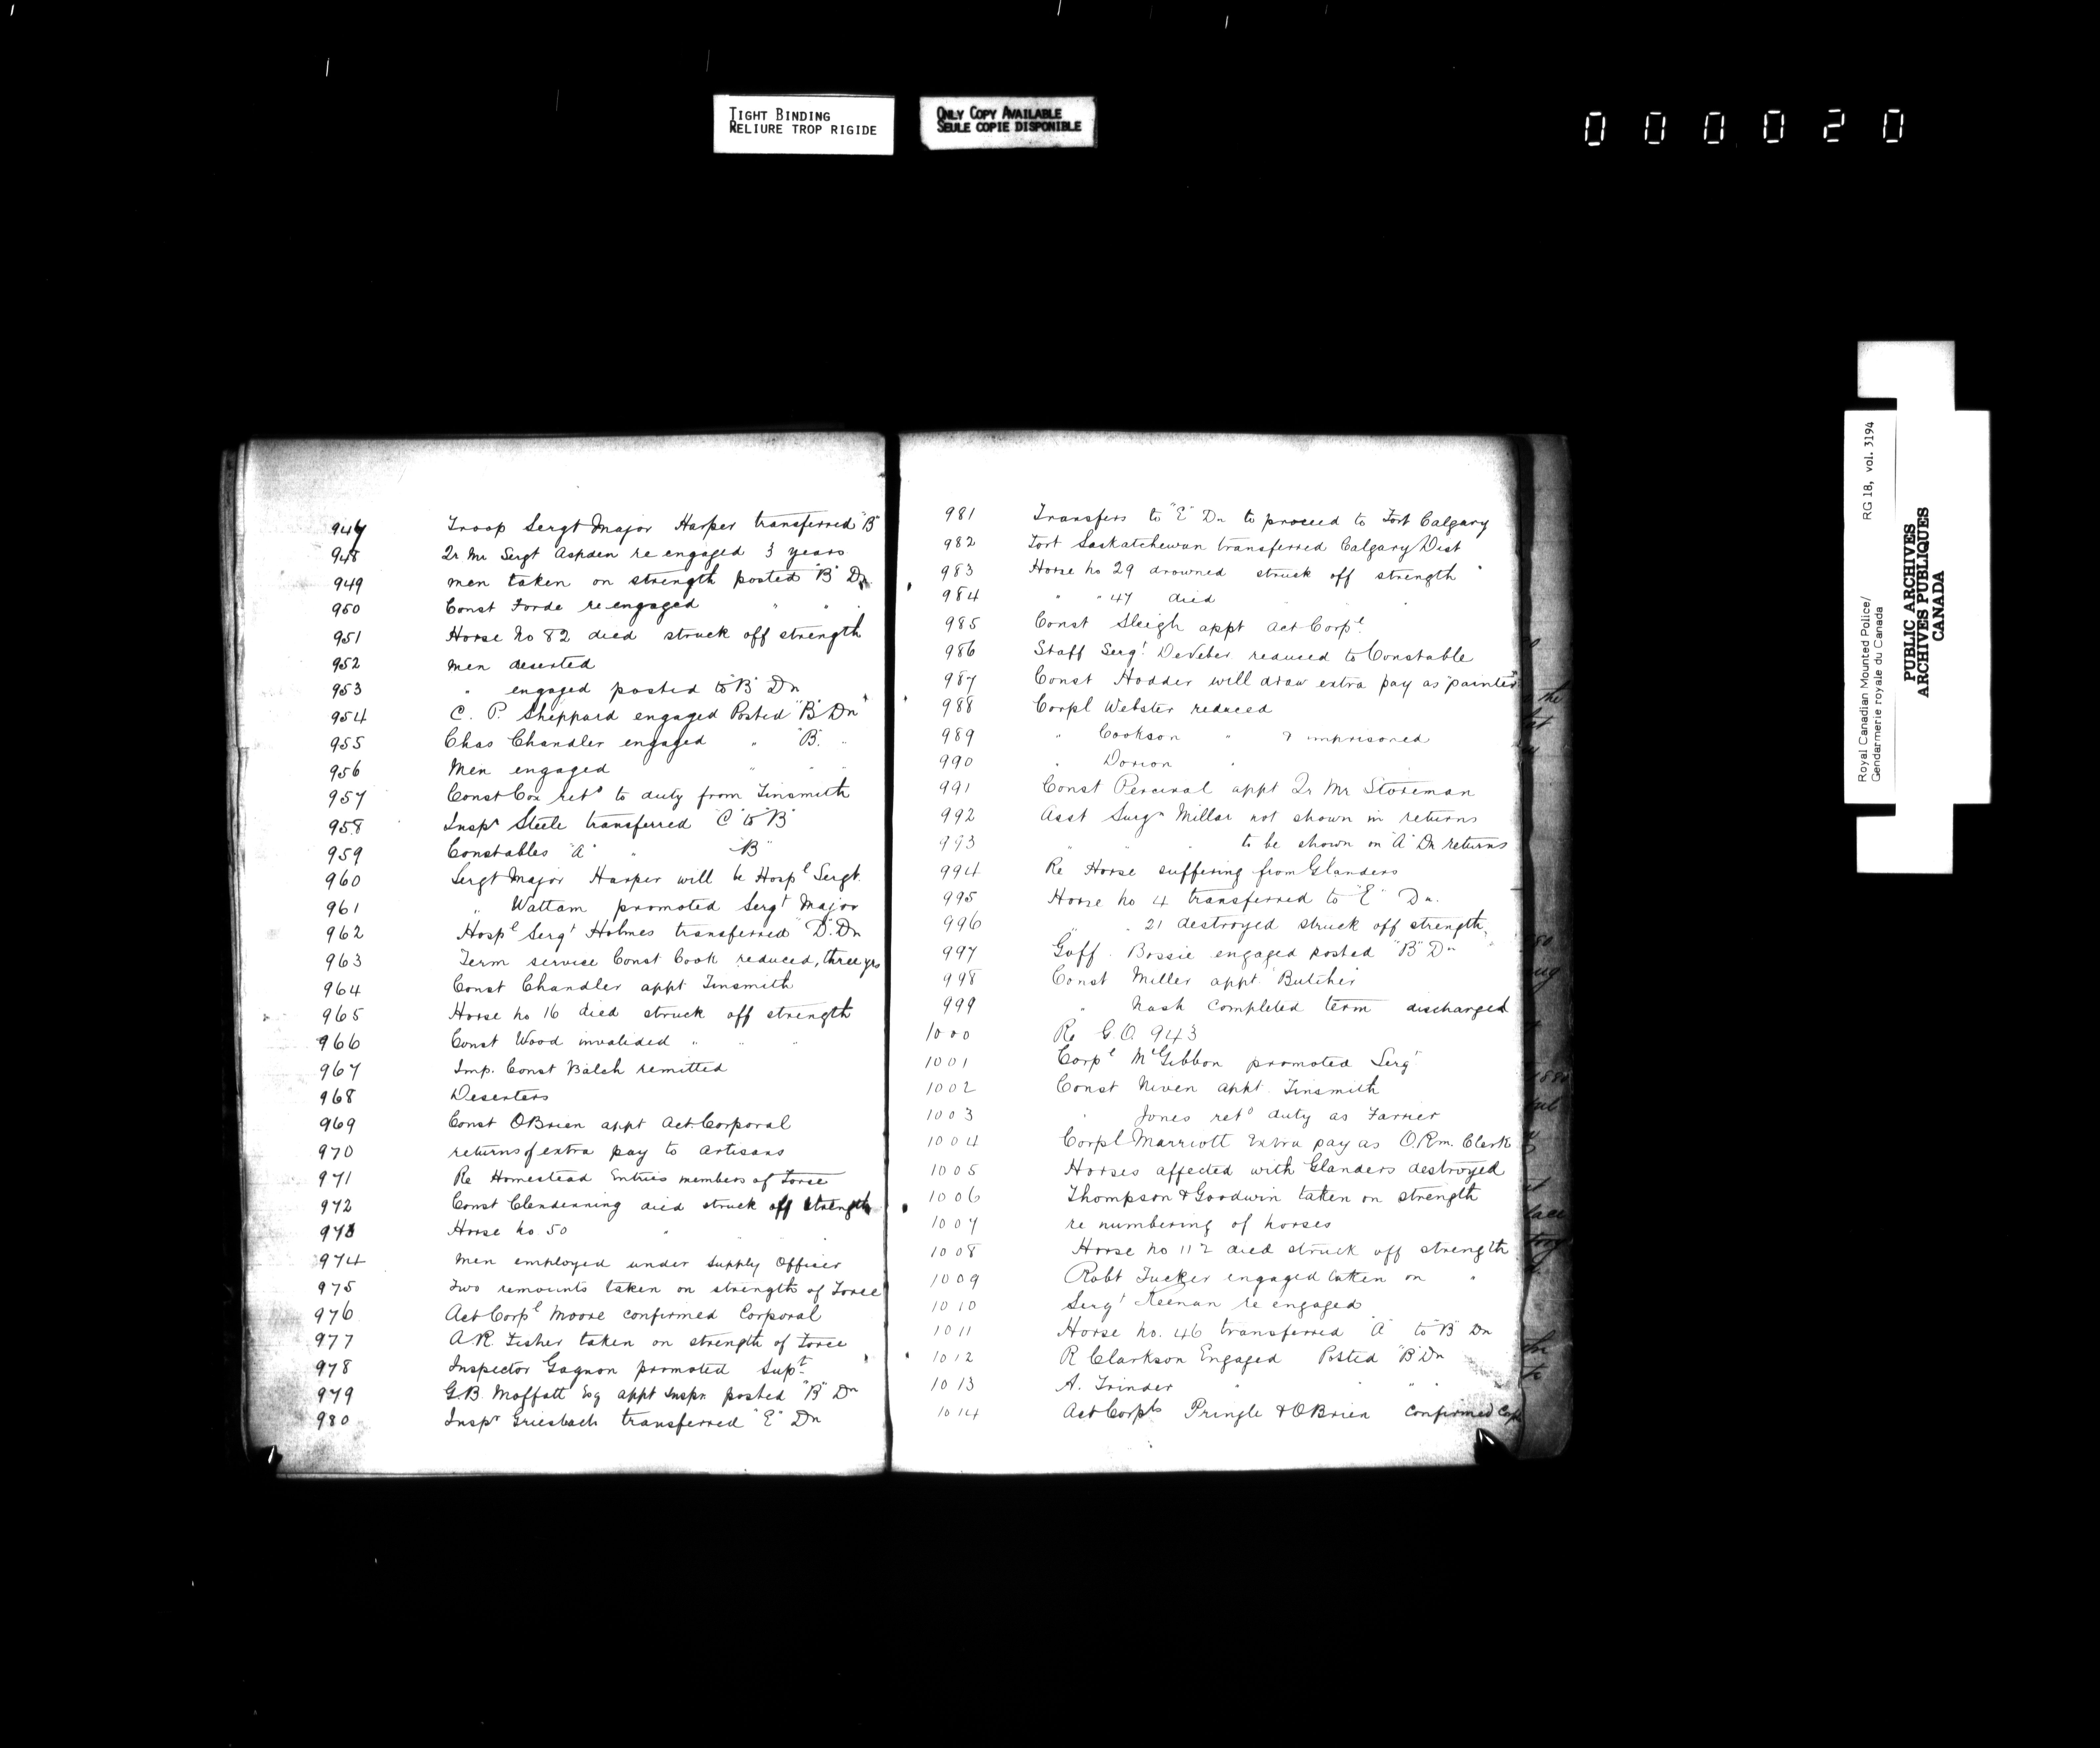 TIGHT BINDING
RELIURE TROP RIGIDE
ONLY COPY AVAILABLE
SEULE COPIE DISPONIBLE
000020
947 Troop Sergt Major Harper transferred "B"
948 Qr Mr Sergt Aspden re engaged 3 years
949 men taken on strength posted "B" Dn
950 Const Forde re engaged " "
951 Horse No 82 died struck off strength
952 Men deserted
953 " engaged posted to "B" Dn
954 C. P. Sheppard engaged Posted "B" Dn
955 Chas Chandler engaged " "B" "
956 Men engaged " " "
957 Const Cox retd to duty from Tinsmith
958 Inspr Steele transferred "C" to "B"
959 Constables "A" " "B"
960 Sergt Major Harper will be Hospl Sergt.
961 " Wattam promoted Sergt Major
962 Hospl Sergt Holmes transferred "D" Dn
963 Term service Const Cook reduced, three yrs
964 Const Chandler appt Tinsmith
965 Horse no 16 died struck off strength
966 Const Wood invalided " " "
967 Imp. Const Balch remitted
968 Deserters
969 Const OBrien appt Act. Corporal
970 returns of extra pay to artisans
971 Re Homestead Entries members of Force
972 Const Clendenning died struck off strength
973 Horse no 50 "
974 Men employed under Supply Officer
975 Two remounts taken on strength of Force
976 Act Corpl Moore confirmed Corporal
977 A.R. Fisher taken on strength of Force
978 Inspector Gagnon promoted Supt.
979 G.B. Moffatt Esq appt Inspr posted "B" Dn
980 Inspr Griesbach transferred "E" Dn
981 Transfers to "E" Dn to proceed to Fort Calgary
982 Fort Saskatchewan transferred Calgary Dist
983 Horse No 29 drowned struck off strength
984 " " 47 died
985 Const Sleigh appt Act Corpl.
986 Staff Sergt. DeVeber reduced to Constable
987 Const Hodder will draw extra pay as "painter"
988 Corpl Webster reduced
989 " Cookson " & imprisoned
990 " Dorion "
991 Const Percival appt Qr Mr Storeman
992 Asst Surgn Millar not shown in returns
993 " " " to be shown on "A" Dn returns
994 Re Horse suffering from Glanders
995 Horse no 4 transferred to "E" Dn.
996 " " 21 destroyed struck off strength
997 Goff. Bossie engaged posted "B" Dn
998 Const Miller appt Butcher
999 " Nash completed term discharged
1000 Re G.O. 943
1001 Corpl McGibbon promoted Sergt
1002 Const Niven appt. Tinsmith
1003 " Jones retd duty as Farrier
1004 Corpl Marriott Extra pay as O.Rm. Clerk
1005 Horses affected with Glanders destroyed
1006 Thompson & Goodwin taken on strength
1007 re numbering of horses
1008 Horse No 112 died struck off strength
1009 Robt Tucker engaged taken on "
1010 Sergt Keenan re engaged
1011 Horse no. 46 transferred "A" to "B" Dn
1012 R Clarkson Engaged Posted "B" Dn
1013 A. Trinder " " " "
1014 Act Corpls Pringle & OBrien Confirmed Cop
Royal Canadian Mounted Police/ RG 18, vol. 3194
Gendarmerie royale du Canada
PUBLIC ARCHIVES
ARCHIVES PUBLIQUES
CANADA